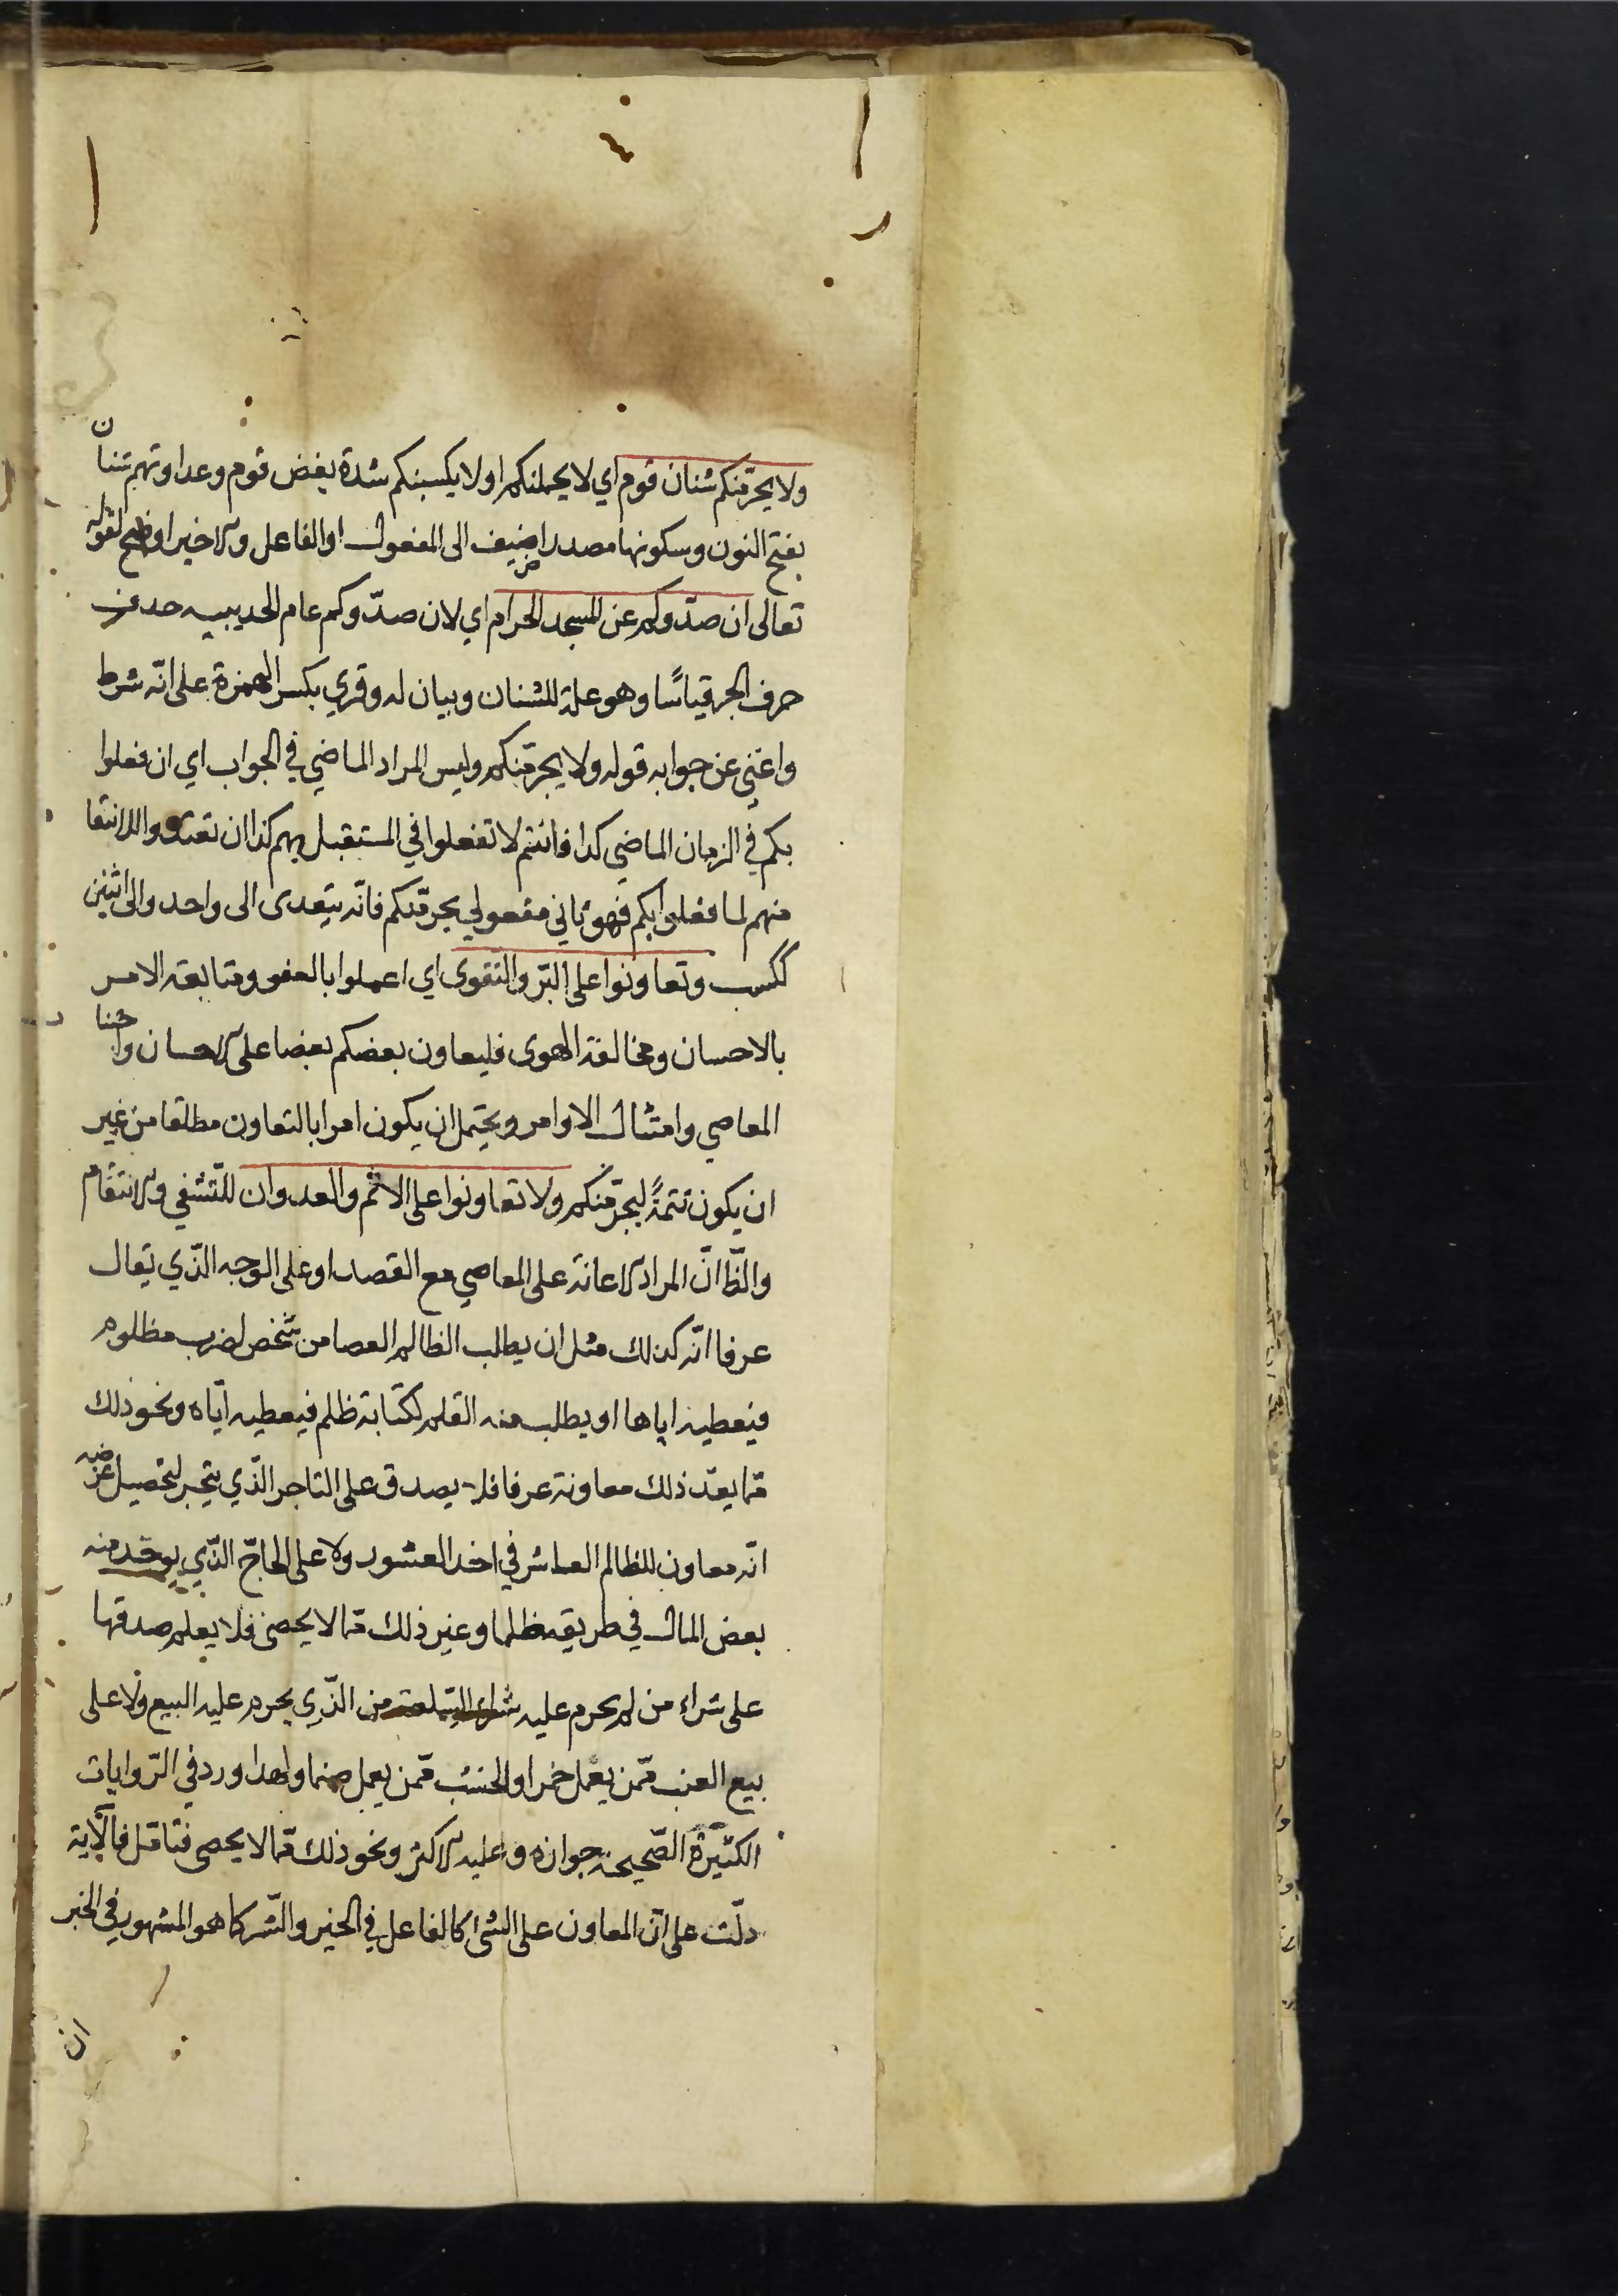 ولا يجرّمنكم شنان قوم اي لا يحملنكم او لا يكسبنكم شدة بغض قوم وعداوتهم شنان
بفتح النون وسكونها مصدر اضيف الى المفعول او الفاعل والاخير اوضح لقوله
تعالى ان صدّوكم عن المسجد الحرام اي لان صدّوكم عام الحديبيه حذف
حرف الجر قياسًا وهو علة للشنان وبيان له وقري بكسر الهمزة على انّه شرط
واغني عن جوابه قوله ولا يجرمنّكم وليس المراد الماضي في الجواب اي ان فعلوا
بكم في الزمان الماضي كذا فانتم لا تفعلوا في المستقبل بهم كذا ان تعتدوا للانتقا
منهم لما فعلوا بكم فهو ثاني مفعولي يجرّمنكم فانّه يتعدى الى واحد والى اثنين
ككسب وتعاونوا على البّر والتقوى اي اعملوا بالعفو ومتابعة الامر
بالاحسان ومخالفة الهوى فليعاون بعضكم بعضا على الاحسان واجتنا
المعاصي وامتثال الاوامر ويحتمل ان يكون امرا بالتعاون مطلقا من غير
ان يكون تتمةً ليجرّمنكم ولا تعاونوا على الاثم والعدوان للتّشفي والانتقام
والظّ انّ المراد الاعانة على المعاصي مع القصد او على الوجه الذّي يقال
عرفا انّه كذلك مثل ان يطلب الظالم العصا من شخص لضرب مظلوم
فيعطيه اياها او يطلب منه القلم لكتابة ظلم فيعطيه ايّاه ونحو ذلك
ممّا يعدّ ذلك معاونة عرفا فلا يصدق على التاجر الذّي يتجر لتحصيل غرضه
انّه معاون للظالم العاشر في اخذ العشور ولا على الحاجّ الذّي يوخذ منه
بعض المال في طريقه ظلما وغير ذلك ممّا لا يحصى فلا يعلم صدقها
على شراء من لم يحرم عليه شراء السّلعة من الذّي يحرم عليه البيع ولا على
بيع العنب ممّن يعمل خمرا والخشب ممّن يعمل صنما ولهذا ورد في الرّوايات
الكثيرة الصّحيحة جوازه وعليه الاكثر ونحو ذلك ممّا لا يحصى فتامّل فالآية
دلّت على انّ المعاون على الشئ كالفاعل في الخير والشّر كما هو المشهور في الخبر
ان